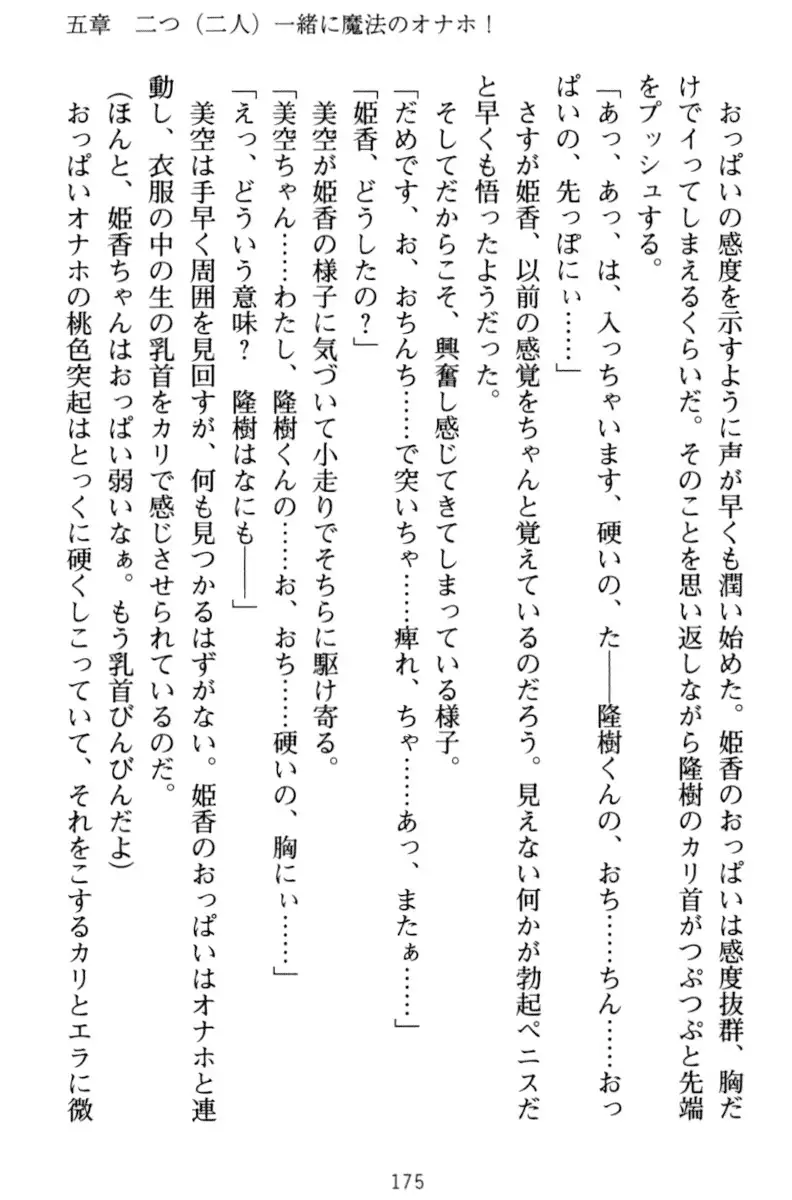 五章　二つ（二人）一緒に魔法のオナホ！
おっぱいの感度を示すように声が早くも潤い始めた。姫香のおっぱいは感度抜群、胸だ
けでイってしまえるくらいだ。そのことを思い返しながら隆樹のカリ首がつぷつぷと先端
をプッシュする。
「あっ、あっ、は、入っちゃいます、硬いの、た――隆樹くんの、おち……ちん……おっ
ぱいの、先っぽにぃ……」
さすが姫香、以前の感覚をちゃんと覚えているのだろう。見えない何かが勃起ペニスだ
と早くも悟ったようだった。
そしてだからこそ、興奮し感じてきてしまっている様子。
「だめです、お、おちんち……で突いちゃ……痺れ、ちゃ……あっ、またぁ……」
「姫香、どうしたの？」
美空が姫香の様子に気づいて小走りでそちらに駆け寄る。
「美空ちゃん……わたし、隆樹くんの……お、おち……硬いの、胸にぃ……」
「えっ、どういう意味？　隆樹はなにも――」
美空は手早く周囲を見回すが、何も見つかるはずがない。姫香のおっぱいはオナホと連
動し、衣服の中の生の乳首をカリで感じさせられているのだ。
（ほんと、姫香ちゃんはおっぱい弱いなぁ。もう乳首びんびんだよ）
おっぱいオナホの桃色突起はとっくに硬くしこっていて、それをこするカリとエラに微
175